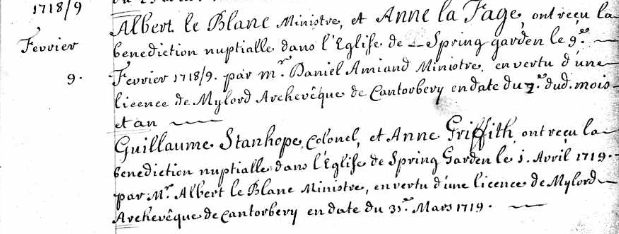 1718/9
Albert le Blanc Ministre, et Anne la Fage, ont recu la
Fevrier
benediction nuptialle dans l'Eglise de Spring garden le 9.e
9.
Fevrier 1718/9. par mr. Daniel Amiand Ministre, en vertu d'une
licence de Mylord Archevêque de Cantorbery en date du 7.e dud. mois
et an
Guillaume Stanhope, Colonel, et Anne Griffith, ont reçu la
benediction nuptialle dans l'Eglise de Spring Garden le 1. Avril 1719.
par Mr. Albert le Blanc Ministre, en vertu d'une licence de Mylord
Archevêque de Cantorbery en date du 31. Mars 1719.